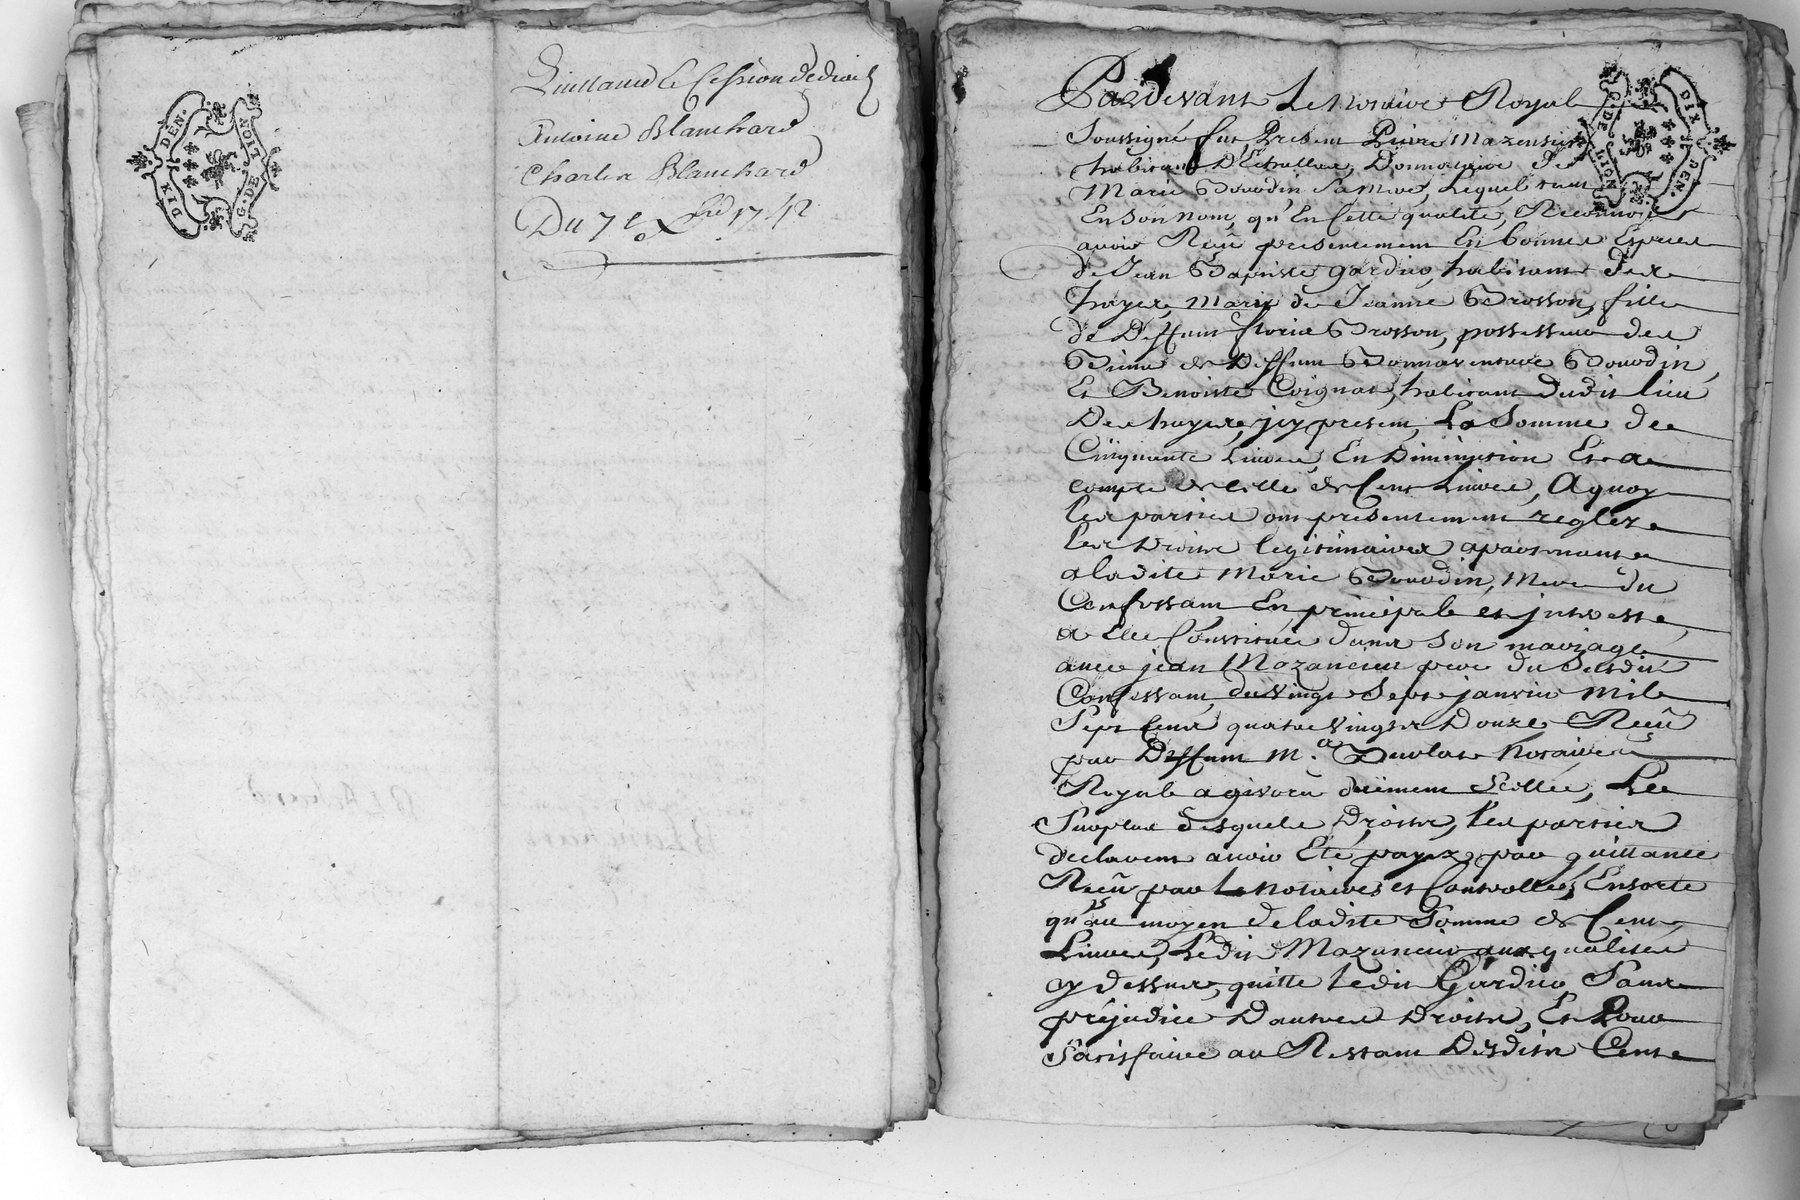 DIX DEN.
G. DE LION
Quittance & Cession de droits
Antoine Blanchard
Charles Blanchard
Du 7e Xbre 1742
Pardevant Le Notaire Royal
G. DE LION
DIX DEN.
Soussigné fut Present Pierre Mazencieu
habitant D'Echallas, Donnataire de
Marie Bourdin Sa Mere, Lequel tant
En Son nom, qu'En Cette qualité, Reconnoit
avoir Reçû presentement En bonnes Especes
de Jean Baptiste gardier, habitant des
hayes, mary de Jeanne Brosson, fille
de Deffunt florie Brosson, possesseur des
Biens de Deffunt Bonnaventure Bourdin,
Et Benoiste Coignat, habitant dudit lieu
Des hayes, jcy present, La Somme de
Cinquante Livres, En Diminution Et a
compte de Celle de Cent Livres, Aquoy
les parties ont presentement reglez
Les Droits legitimaires apartenants
a ladite Marie Bourdin, Mere du
Confessant, En principale et jnterests,
a Elle Constituée dans Son mariage
avec jean Mazancieu pere du Susdit
Confessant, du vingt Sept janvier mil
Sept Cent quatre vingts Douze Reçû
par Deffunt M.e notaire
Royal a givors düement Scellée, Le
Surplus desquels Droits, les parties
declarent avoir Eté payez par quittance
Reçû par Le notaires et Controllées, Ensorte
qu'au moyen de ladite Somme de Cent
Livres, Ledit Mazancieu aux qualités
cy dessus, quitte ledit Gardier, Sans
préjudice D'autres Droits, Et Pour
Satisfaire au Restant Desdits Cent